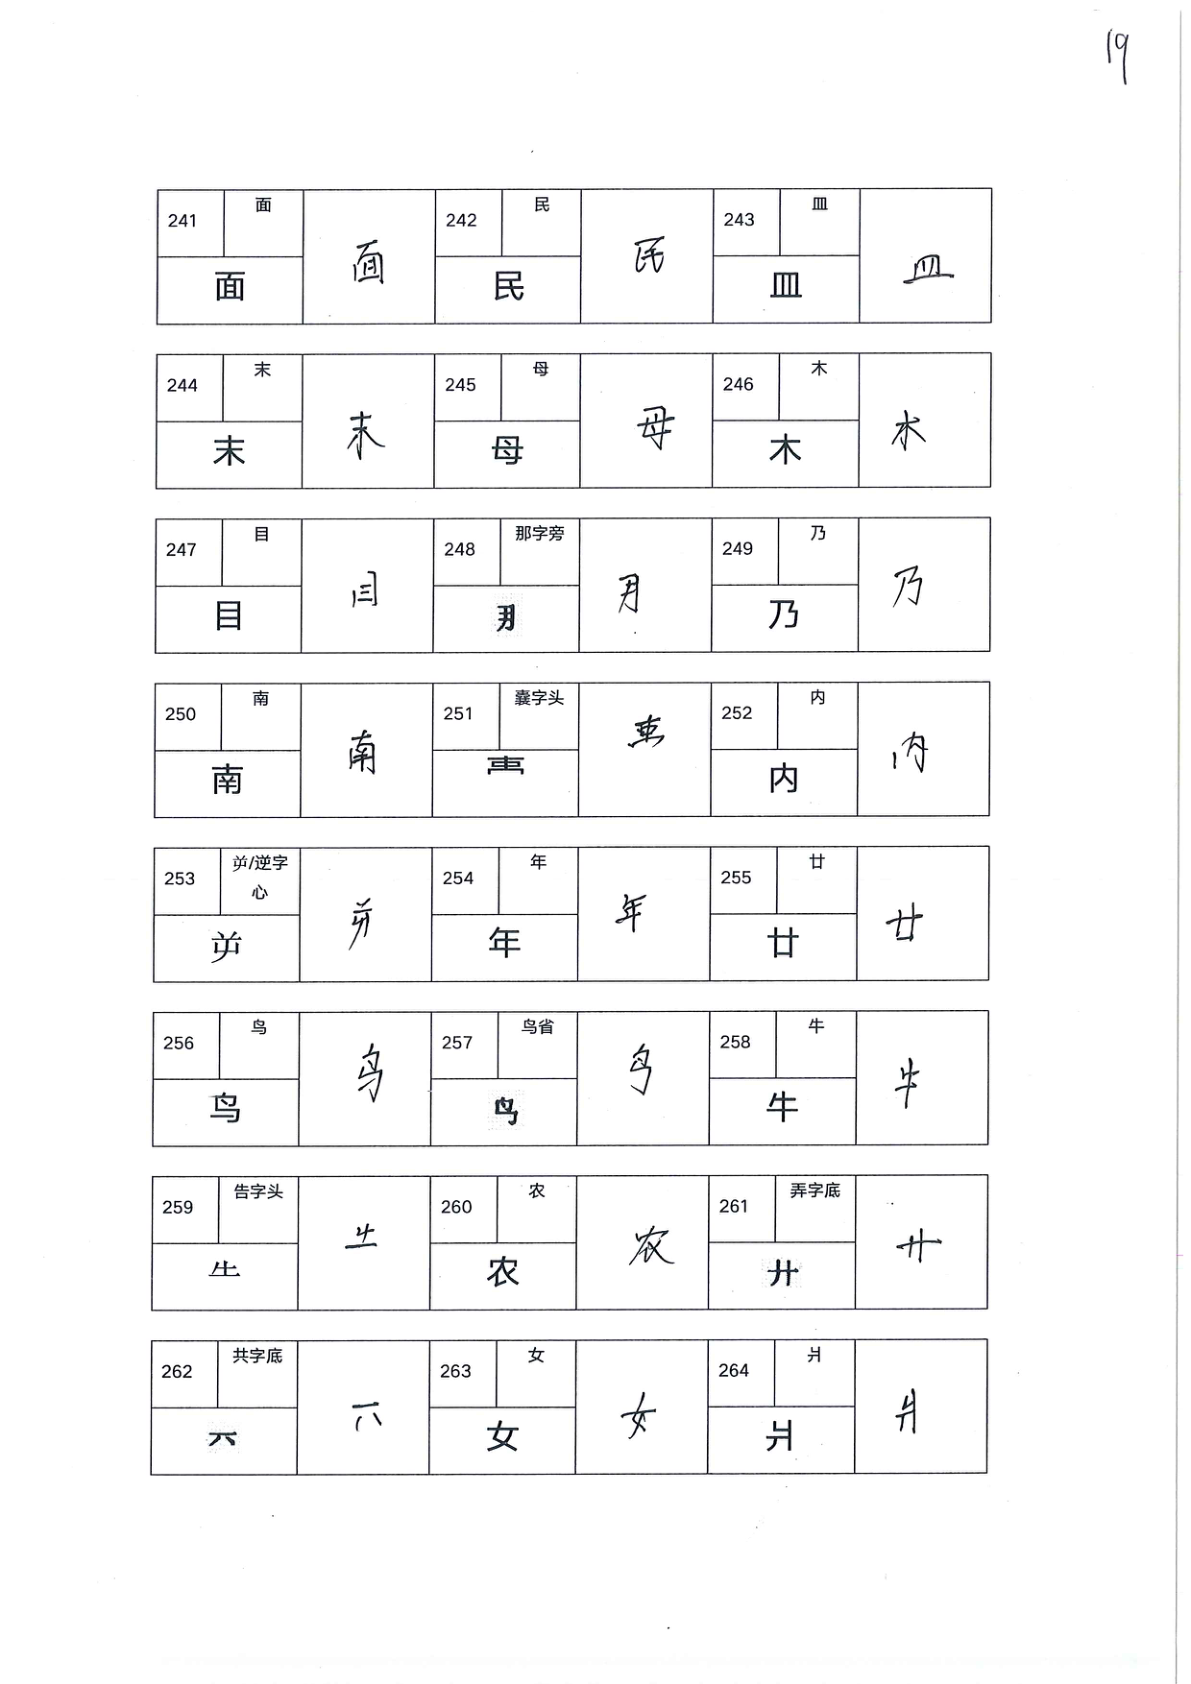 19
241 面 面 面 242 民 民 民 243 皿 皿 皿
244 末 末 末 245 母 母 母 246 木 木 木
247 目 目 目 248 那字旁 249 乃 乃 乃
250 南 南 南 251 囊字头 252 内 内 内
253 屰/逆字心 屰 254 年 年 年 255 廿 廿 廿
256 鸟 鸟 鸟 257 鸟省 258 牛 牛 牛
259 告字头 260 农 农 农 261 弄字底 廾 廾
262 共字底 263 女 女 女 264 爿 爿 爿